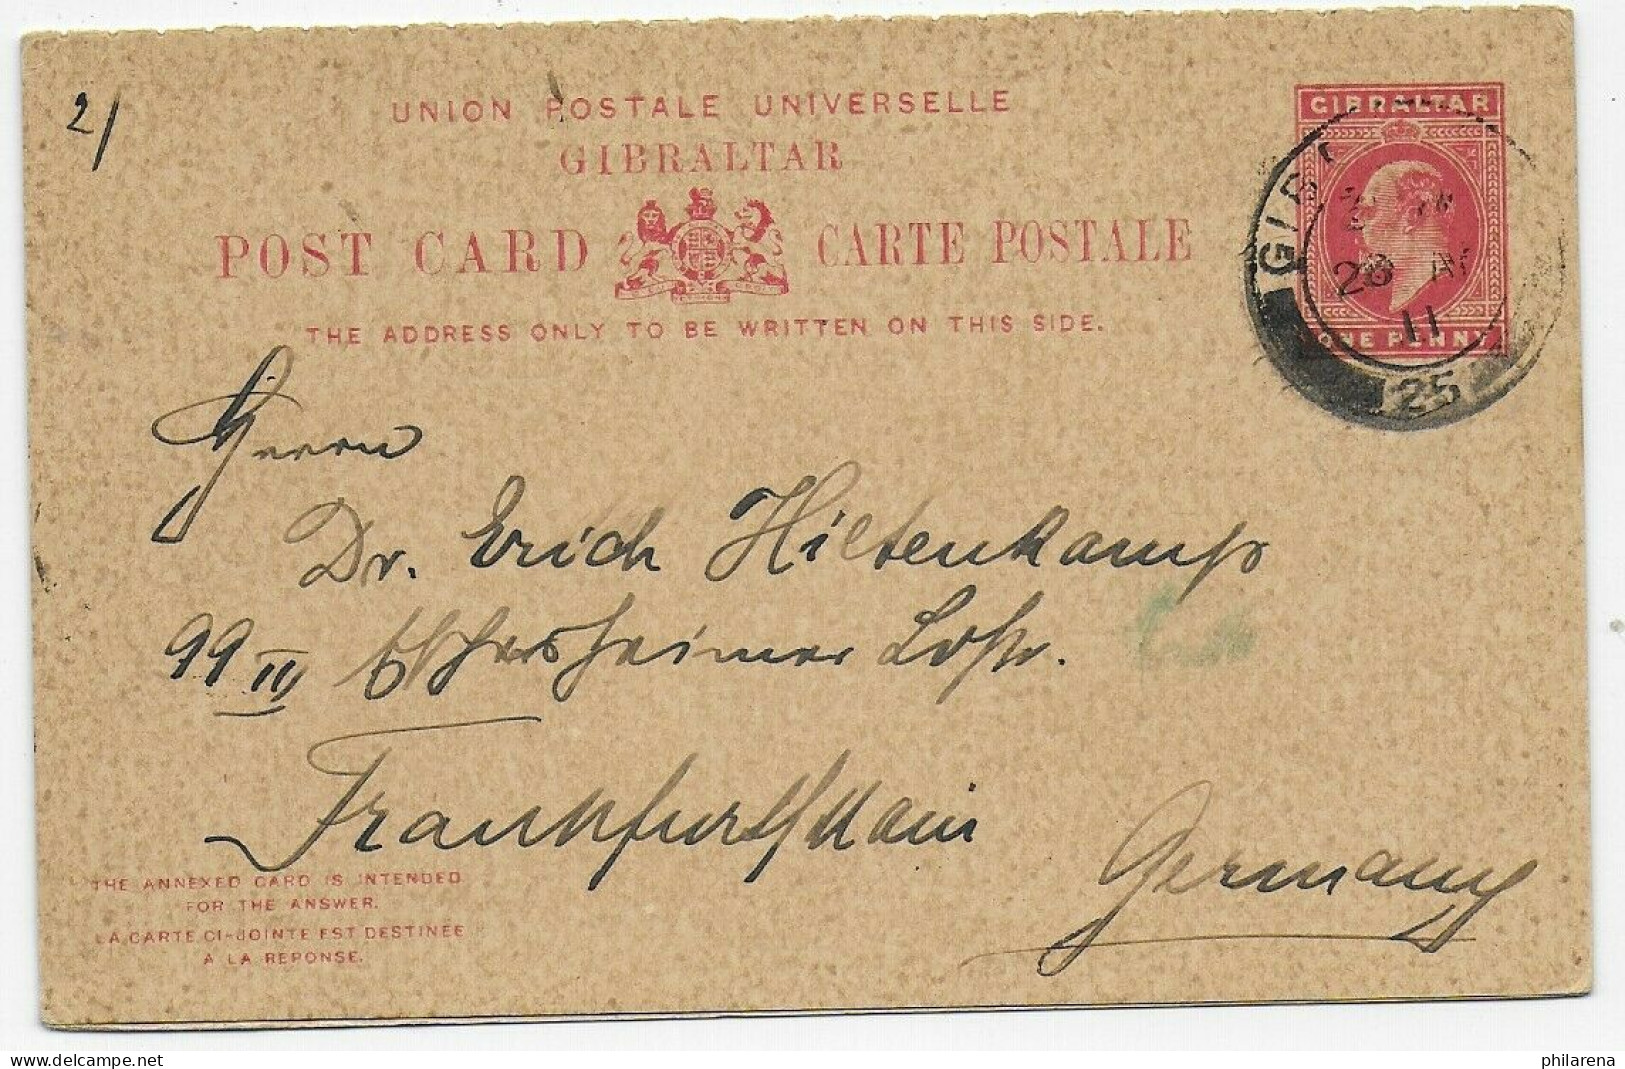 2/
UNION POSTALE UNIVERSELLE
GIBRALTAR
POST CARD CARTE POSTALE
THE ADDRESS ONLY TO BE WRITTEN ON THIS SIDE.
GIBRALTAR
ONE PENNY
GIB
26
11
25
Herrn
Dr. Erich Hiltenkamp
99 II Ldstr.
Frankfurt/Main
Germany
THE ANNEXED CARD IS INTENDED
FOR THE ANSWER.
LA CARTE CI-JOINTE EST DESTINÉE
A LA REPONSE.
www.delcampe.net
philarena